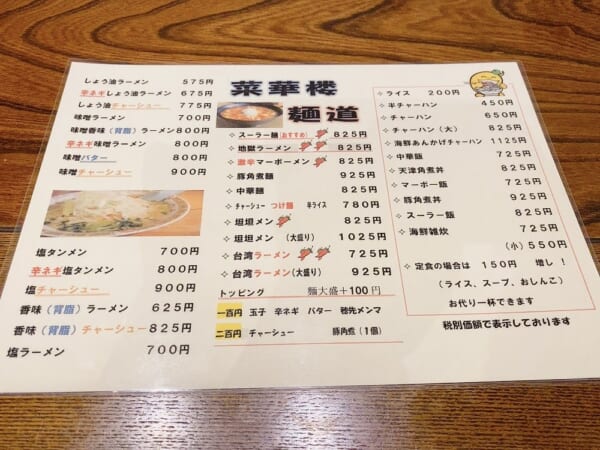 しょう油ラーメン 575円
辛ネギしょう油ラーメン 675円
しょう油チャーシュー 775円
味噌ラーメン 700円
味噌香味(背脂)ラーメン 800円
辛ネギ味噌ラーメン 800円
味噌バター 800円
味噌チャーシュー 900円
塩タンメン 700円
辛ネギ塩タンメン 800円
塩チャーシュー 900円
香味(背脂)ラーメン 625円
香味(背脂)チャーシュー 825円
塩ラーメン 700円
菜華楼
麺道
スーラー麺(おすすめ) 825円
地獄ラーメン 825円
激辛マーボーメン 825円
豚角煮麺 925円
中華麺 825円
チャーシューつけ麺 半ライス 780円
坦坦メン 825円
坦坦メン (大盛り) 1025円
台湾ラーメン 725円
台湾ラーメン(大盛り) 925円
トッピング 麺大盛+100円
一百円 玉子 辛ネギ バター 穂先メンマ
二百円 チャーシュー 豚角煮(1個)
ライス 200円
半チャーハン 450円
チャーハン 650円
チャーハン(大) 825円
海鮮あんかけチャーハン 1125円
中華飯 725円
天津角煮丼 825円
マーボー飯 725円
豚角煮丼 925円
スーラー飯 825円
海鮮雑炊 725円
(小) 550円
定食の場合は 150円 増し!
(ライス、スープ、おしんこ)
お代り一杯できます
税別価額で表示しております